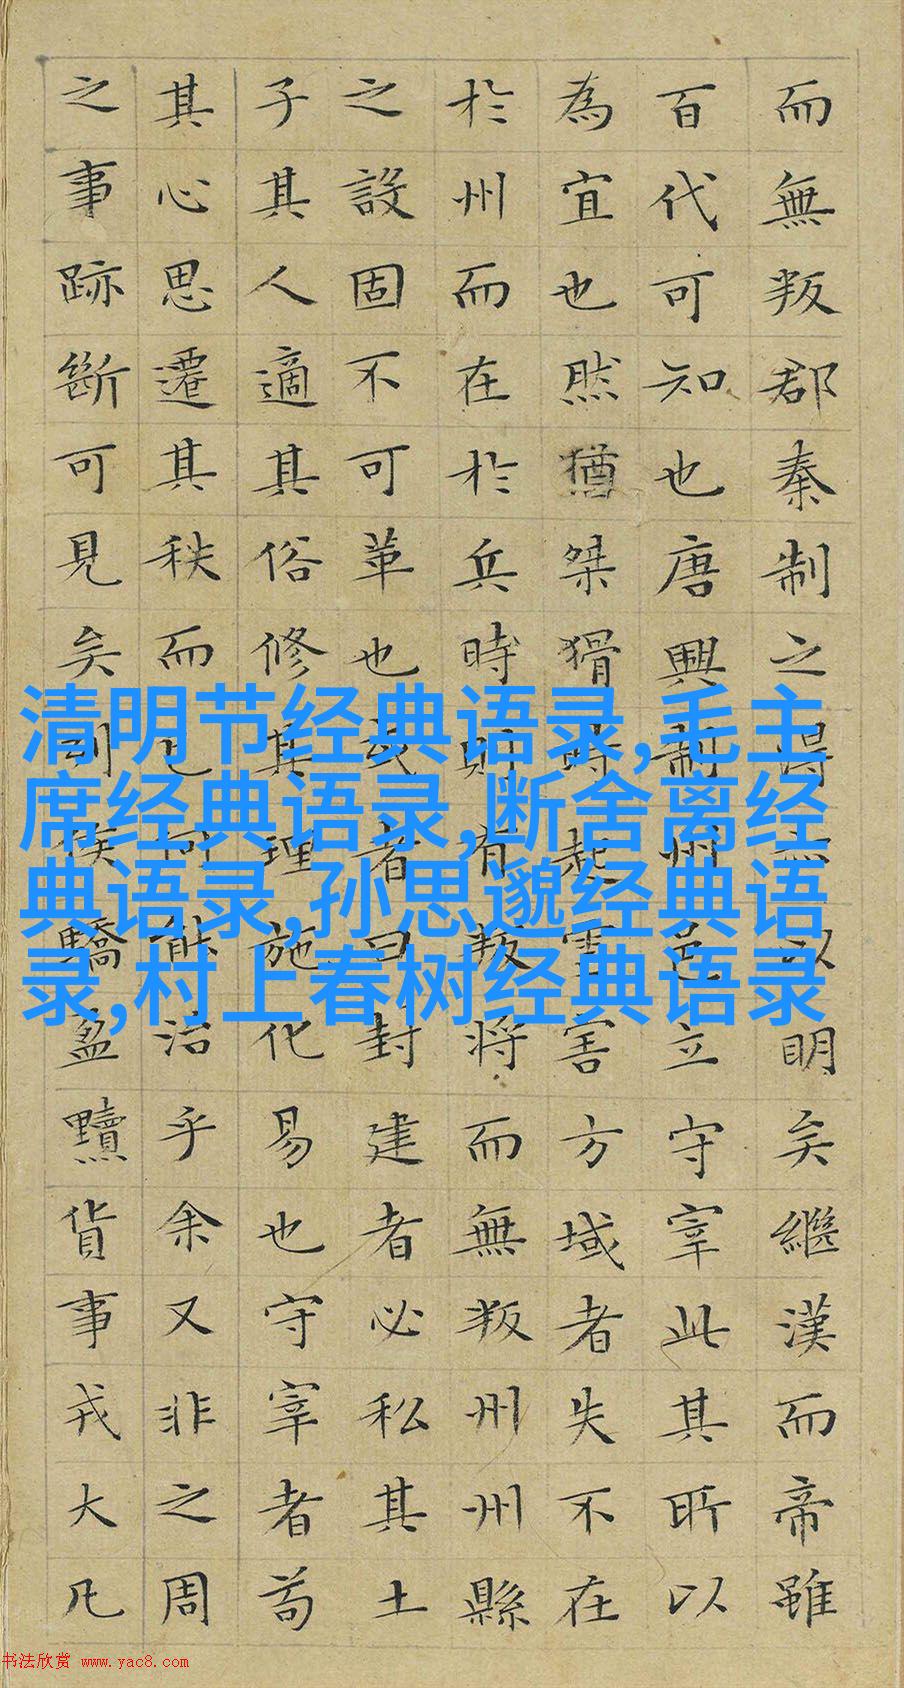 而無叛郡秦制之得無以明矣繼漢而帝雖
百代可知也唐興制州邑立守宰此其所以
為宜也然猶桀猾時起虐害方域者失不在
於州而在於兵時則有叛將而無叛州州縣
之設固不可革也或者曰封建者必私其土
子其人適其俗修其理施化易也守宰者苟
其心思遷其秩而已何能治乎余又非之周
之事跡斷可見矣列侯驕盈黷貨事戎大凡
清明节经典语录,毛主
席经典语录,断舍离经
典语录,孙思邈经典语
录,村上春树经典语录
书法欣赏 www.yac8.com